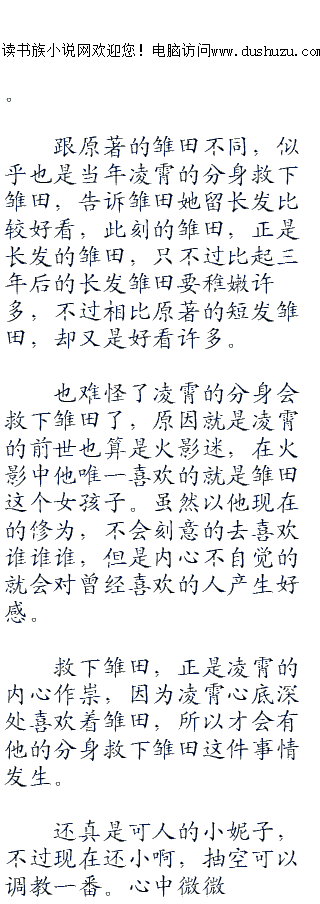 读书族小说网欢迎您！电脑访问www.dushuzu.com
。
跟原著的雏田不同，似
乎也是当年凌霄的分身救下
雏田，告诉雏田她留长发比
较好看，此刻的雏田，正是
长发的雏田，只不过比起三
年后的长发雏田要稚嫩许
多，不过相比原著的短发雏
田，却又是好看许多。
也难怪了凌霄的分身会
救下雏田了，原因就是凌霄
的前世也算是火影迷，在火
影中他唯一喜欢的就是雏田
这个女孩子。虽然以他现在
的修为，不会刻意的去喜欢
谁谁谁，但是内心不自觉的
就会对曾经喜欢的人产生好
感。
救下雏田，正是凌霄的
内心作祟，因为凌霄心底深
处喜欢着雏田，所以才会有
他的分身救下雏田这件事情
发生。
还真是可人的小妮子，
不过现在还小啊，抽空可以
调教一番。心中微微